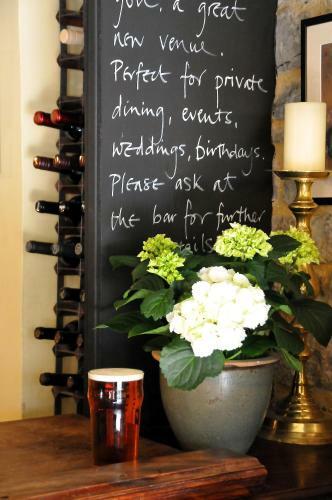 you, a great
new venue.
Perfect for private
dining, events,
weddings, birthdays.
Please ask at
the bar for further
details